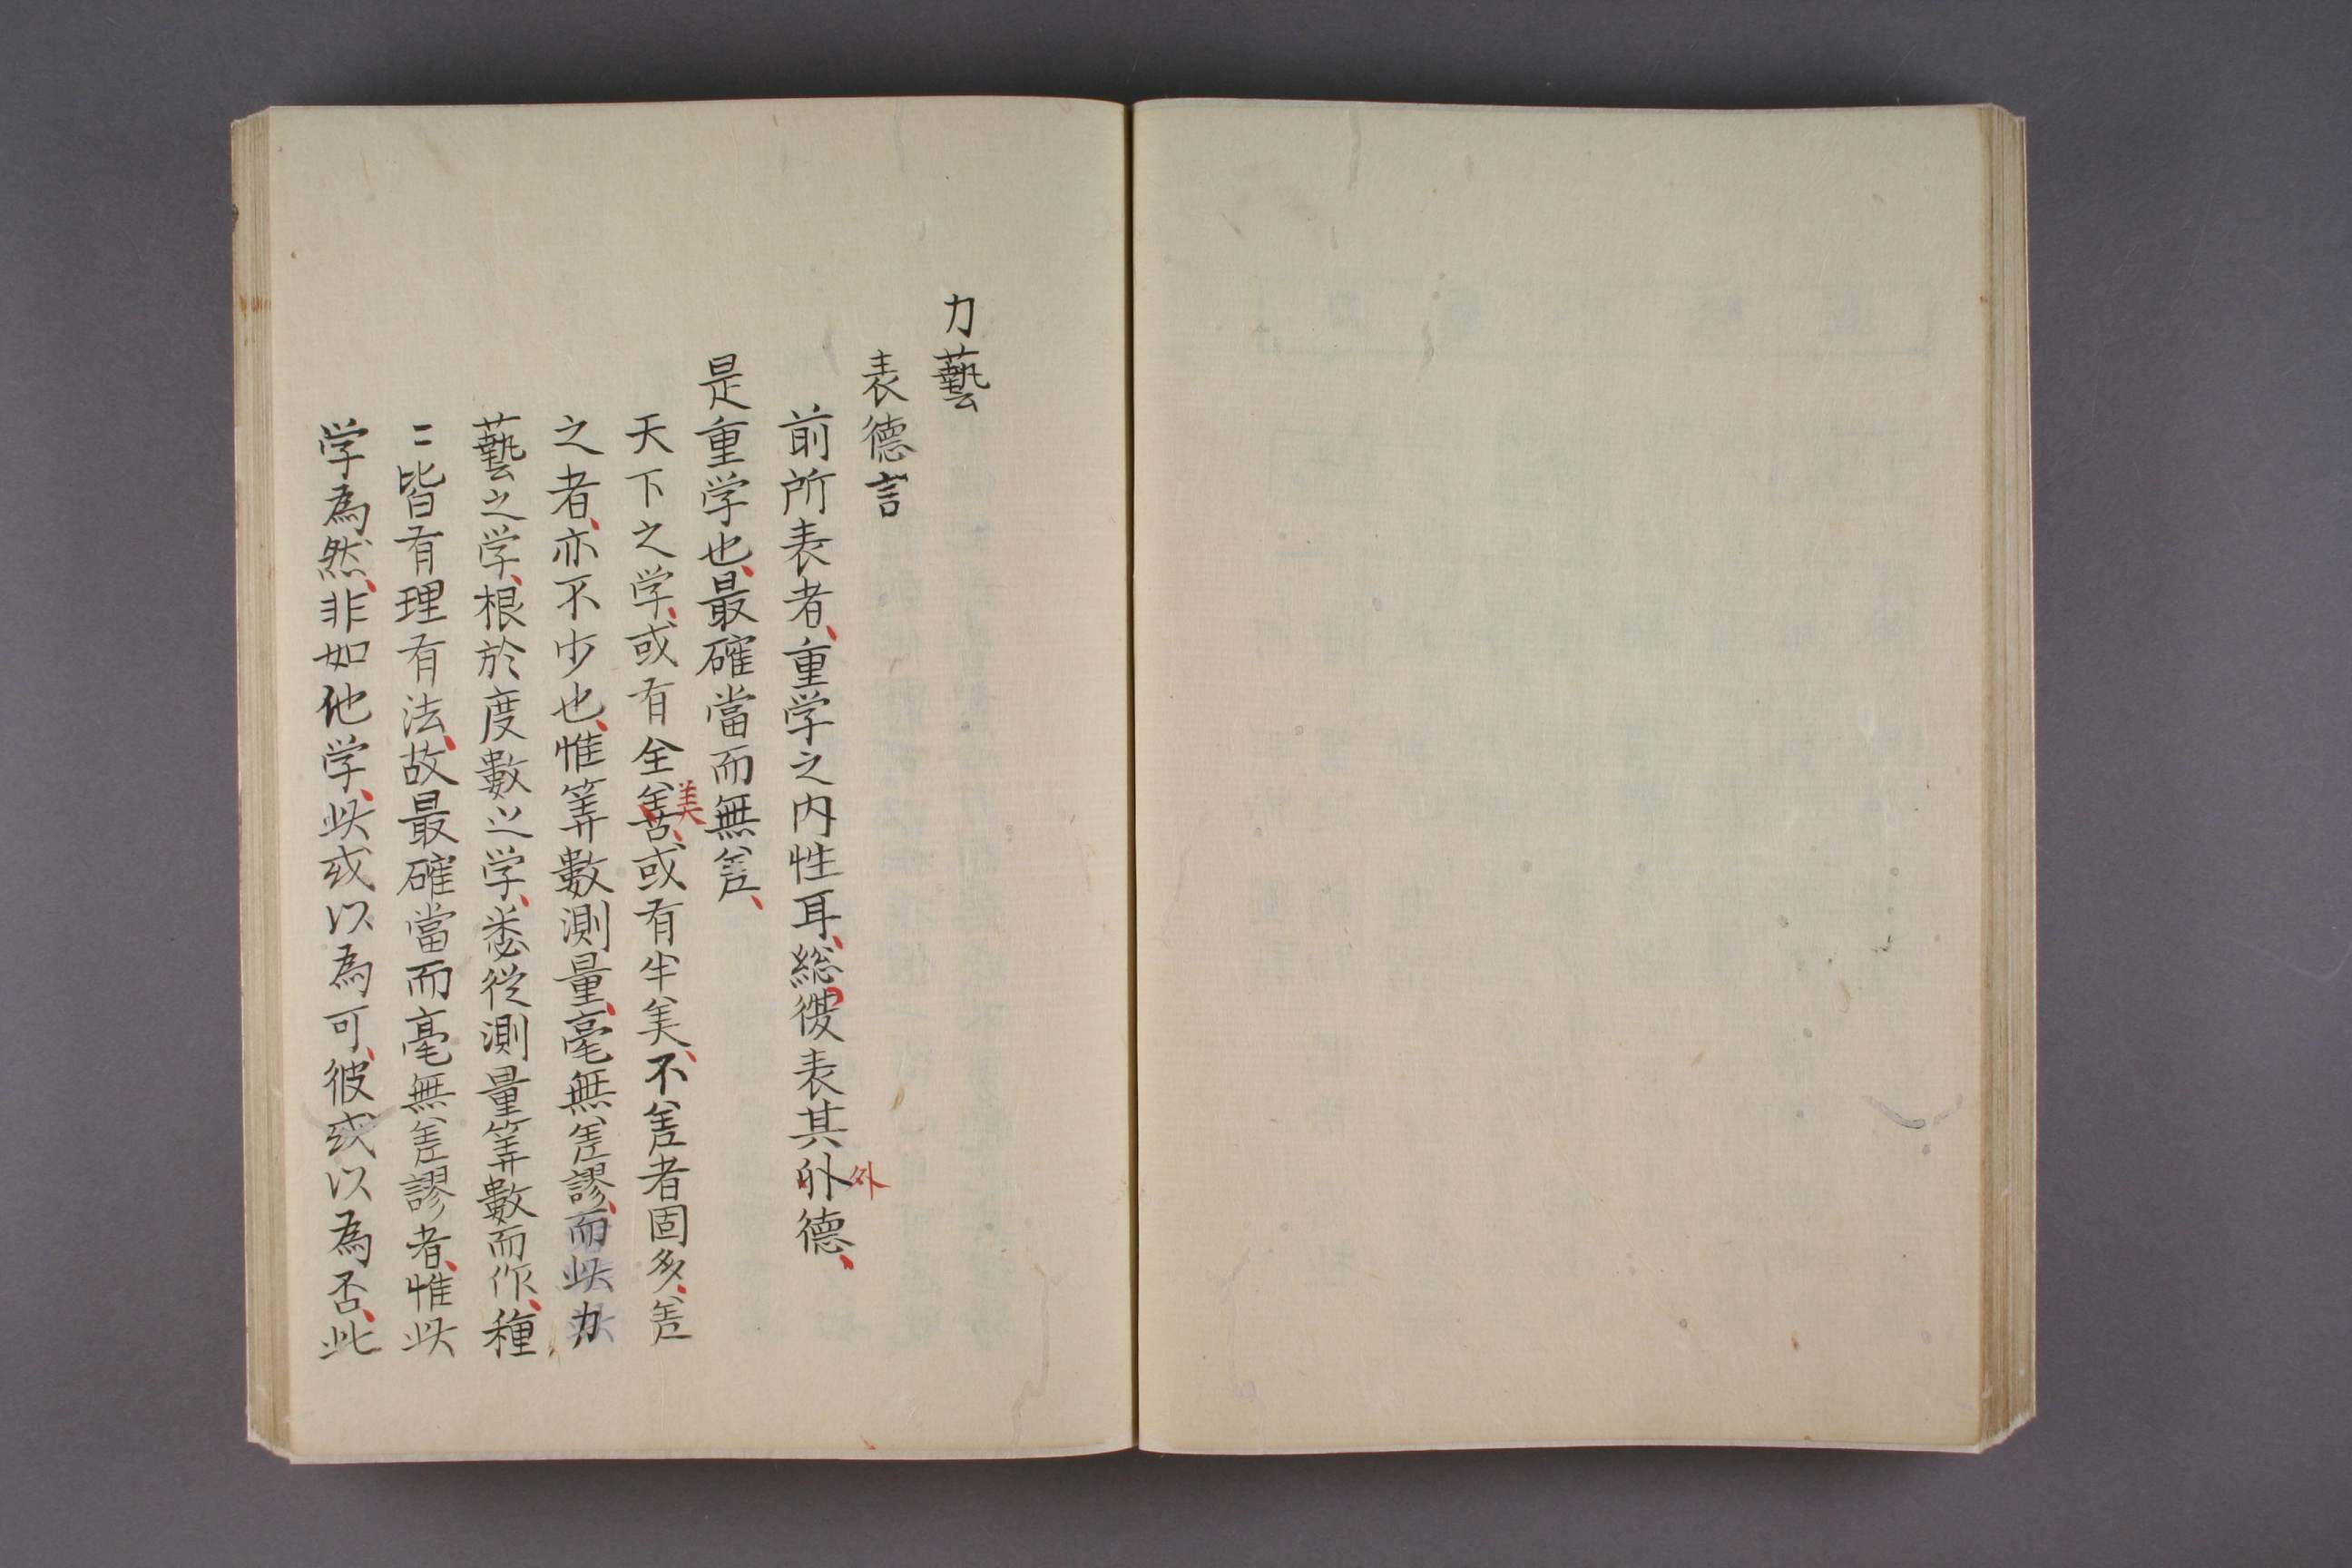 力藝
表德言
前所表者、重学之内性耳、総彼表其外德、
外
是重学也、最確當而無差、
天下之学、或有全善、或有半美、不差者固多、差
美
之者、亦不少也、惟筭數測量、毫無差謬、而此力
藝之学、根於度數之学、悉從測量筭數而作、種
〻皆有理有法、故最確當而毫無差謬者、惟此
学為然、非如他学、此或以為可、彼或以為否、此